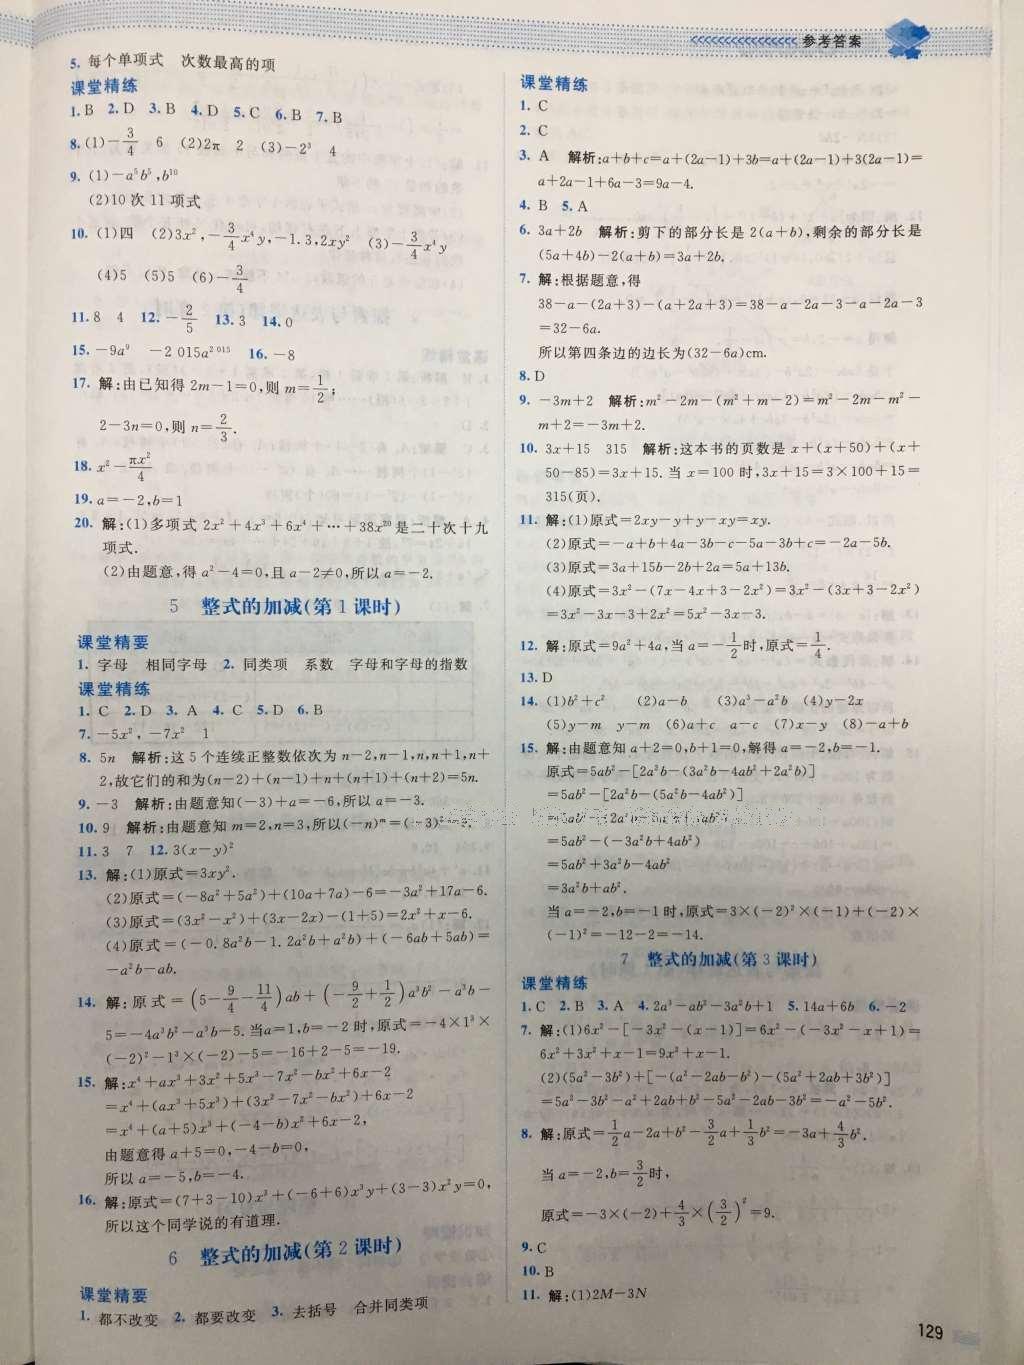 参考答案
5. 每个单项式 次数最高的项
课堂精练
1. B 2. D 3. B 4. D 5. C 6. B 7. B
8. (1)-3/4 6 (2)2π 2 (3)-2³ 4
9. (1)-a⁵b⁵, b¹⁰
(2)10次11项式
10. (1)四 (2)3x², -3/4x⁴y, -1.3, 2xy² (3)-3/4x⁴y
(4)5 (5)5 (6)-3/4
11. 8 4 12. -2/5 13. 3 14. 0
15. -9a⁹ -2 015a²⁰¹⁵ 16. -8
17. 解:由已知得2m-1=0,则m=1/2;
2-3n=0,则n=2/3.
18. x²-πx²/4
19. a=-2,b=1
20. 解:(1)多项式2x²+4x³+6x⁴+…+38x²⁰是二十次十九
项式.
(2)由题意,得a²-4=0,且a-2≠0,所以a=-2.
5 整式的加减(第1课时)
课堂精要
1. 字母 相同字母 2. 同类项 系数 字母和字母的指数
课堂精练
1. C 2. D 3. A 4. C 5. D 6. B
7. -5x², -7x² 1
8. 5n 解析:这5个连续正整数依次为n-2,n-1,n,n+1,n+
2,故它们的和为(n-2)+(n-1)+n+(n+1)+(n+2)=5n.
9. -3 解析:由题意知(-3)+a=-6,所以a=-3.
10. 9 解析:由题意知m=2,n=3,所以(-n)ᵐ=(-3)²=9.
11. 3 7 12. 3(x-y)²
13. 解:(1)原式=3xy².
(2)原式=(-8a²+5a²)+(10a+7a)-6=-3a²+17a-6.
(3)原式=(3x²-x²)+(3x-2x)-(1+5)=2x²+x-6.
(4)原式=(-0.8a²b-1.2a²b+a²b)+(-6ab+5ab)=
-a²b-ab.
14. 解:原式=(5-9/4-11/4)ab+(-9/2+1/2)a³b²-a³b-
5=-4a³b²-a³b-5.当a=1,b=-2时,原式=-4×1³×
(-2)²-1³×(-2)-5=-16+2-5=-19.
15. 解:x⁴+ax³+3x²+5x³-7x²-bx²+6x-2
=x⁴+(ax³+5x³)+(3x²-7x²-bx²)+6x-2
=x⁴+(a+5)x³+(-4-b)x²+6x-2,
由题意得a+5=0,-4-b=0,
所以a=-5,b=-4.
16. 解:原式=(7+3-10)x³+(-6+6)x³y+(3-3)x²y=0,
所以这个同学说的有道理.
6 整式的加减(第2课时)
课堂精要
1. 都不改变 2. 都要改变 3. 去括号 合并同类项
课堂精练
1. C
2. C
3. A 解析:a+b+c=a+(2a-1)+3b=a+(2a-1)+3(2a-1)=
a+2a-1+6a-3=9a-4.
4. B 5. A
6. 3a+2b 解析:剪下的部分长是2(a+b),剩余的部分长是
(5a+4b)-2(a+b)=3a+2b.
7. 解:根据题意,得
38-a-(2a+3)-(a+2a+3)=38-a-2a-3-a-2a-3
=32-6a.
所以第四条边的边长为(32-6a)cm.
8. D
9. -3m+2 解析:m²-2m-(m²+m-2)=m²-2m-m²-
m+2=-3m+2.
10. 3x+15 315 解析:这本书的页数是x+(x+50)+(x+
50-85)=3x+15.当x=100时,3x+15=3×100+15=
315(页).
11. 解:(1)原式=2xy-y+y-xy=xy.
(2)原式=-a+b+4a-3b-c-5a-3b+c=-2a-5b.
(3)原式=3a+15b-2b+2a=5a+13b.
(4)原式=3x²-(7x-4x+3-2x²)=3x²-(3x+3-2x²)
=3x²-3x-3+2x²=5x²-3x-3.
12. 解:原式=9a²+4a,当a=-1/2时,原式=1/4.
13. D
14. (1)b²+c² (2)a-b (3)a³-a²b (4)y-2x
(5)y-m y-m (6)a+c a-c (7)x-y (8)-a+b
15. 解:由题意知a+2=0,b+1=0,解得a=-2,b=-1.
原式=5ab²-[2a²b-(3a²b-4ab²+2a²b)]
=5ab²-[2a²b-(5a²b-4ab²)]
=5ab²-(2a²b-5a²b+4ab²)
=5ab²-(-3a²b+4ab²)
=5ab²+3a²b-4ab²
=3a²b+ab².
当a=-2,b=-1时,原式=3×(-2)²×(-1)+(-2)×
(-1)²=-12-2=-14.
7 整式的加减(第3课时)
课堂精练
1. C 2. B 3. A 4. 2a³-ab²-3a²b+1 5. 14a+6b 6. -2
7. 解:(1)6x²-[-3x²-(x-1)]=6x²-(-3x²-x+1)=
6x²+3x²+x-1=9x²+x-1.
(2)(5a²-3b²)+[-(a²-2ab-b²)-(5a²+2ab+3b²)]
=5a²-3b²-a²+2ab+b²-5a²-2ab-3b²=-a²-5b².
8. 解:原式=1/2a-2a+b²-3/2a+1/3b²=-3a+4/3b².
当a=-2,b=3/2时,
原式=-3×(-2)+4/3×(3/2)²=9.
9. C
10. B
11. 解:(1)2M-3N
129